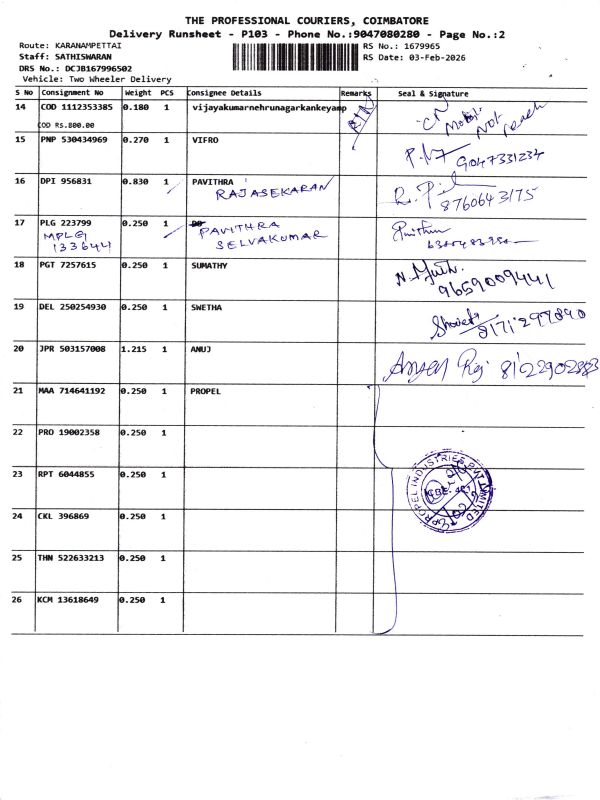 THE PROFESSIONAL COURIERS, COIMBATORE
Delivery Runsheet - P103 - Phone No.:9047080280 - Page No.:2
Route: KARANAMPETTAI RS No.: 1679965
Staff: SATHISWARAN RS Date: 03-Feb-2026
DRS No.: DCJB167996502
Vehicle: Two Wheeler Delivery
S No Consignment No Weight PCS Consignee Details Remarks Seal & Signature
14 COD 1112353385 0.180 1 vijayakumarnehrunagarkankeyamp
COD Rs.800.00 Not reach
15 PNP 530434969 0.270 1 VIFRO 9047331234
16 DPI 956831 0.830 1 PAVITHRA
RAJASEKARAN 8760643175
17 PLG 223799 0.250 1 PAVITHRA
MPLG SELVAKUMAR
133644
18 PGT 7257615 0.250 1 SUMATHY
9659009441
19 DEL 250254930 0.250 1 SWETHA
20 JPR 503157008 1.215 1 ANUJ
21 MAA 714641192 0.250 1 PROPEL
22 PRO 19002358 0.250 1
23 RPT 6044855 0.250 1 PROPEL INDUSTRIES PVT LIMITED
24 CKL 396869 0.250 1
25 THN 522633213 0.250 1
26 KCM 13618649 0.250 1